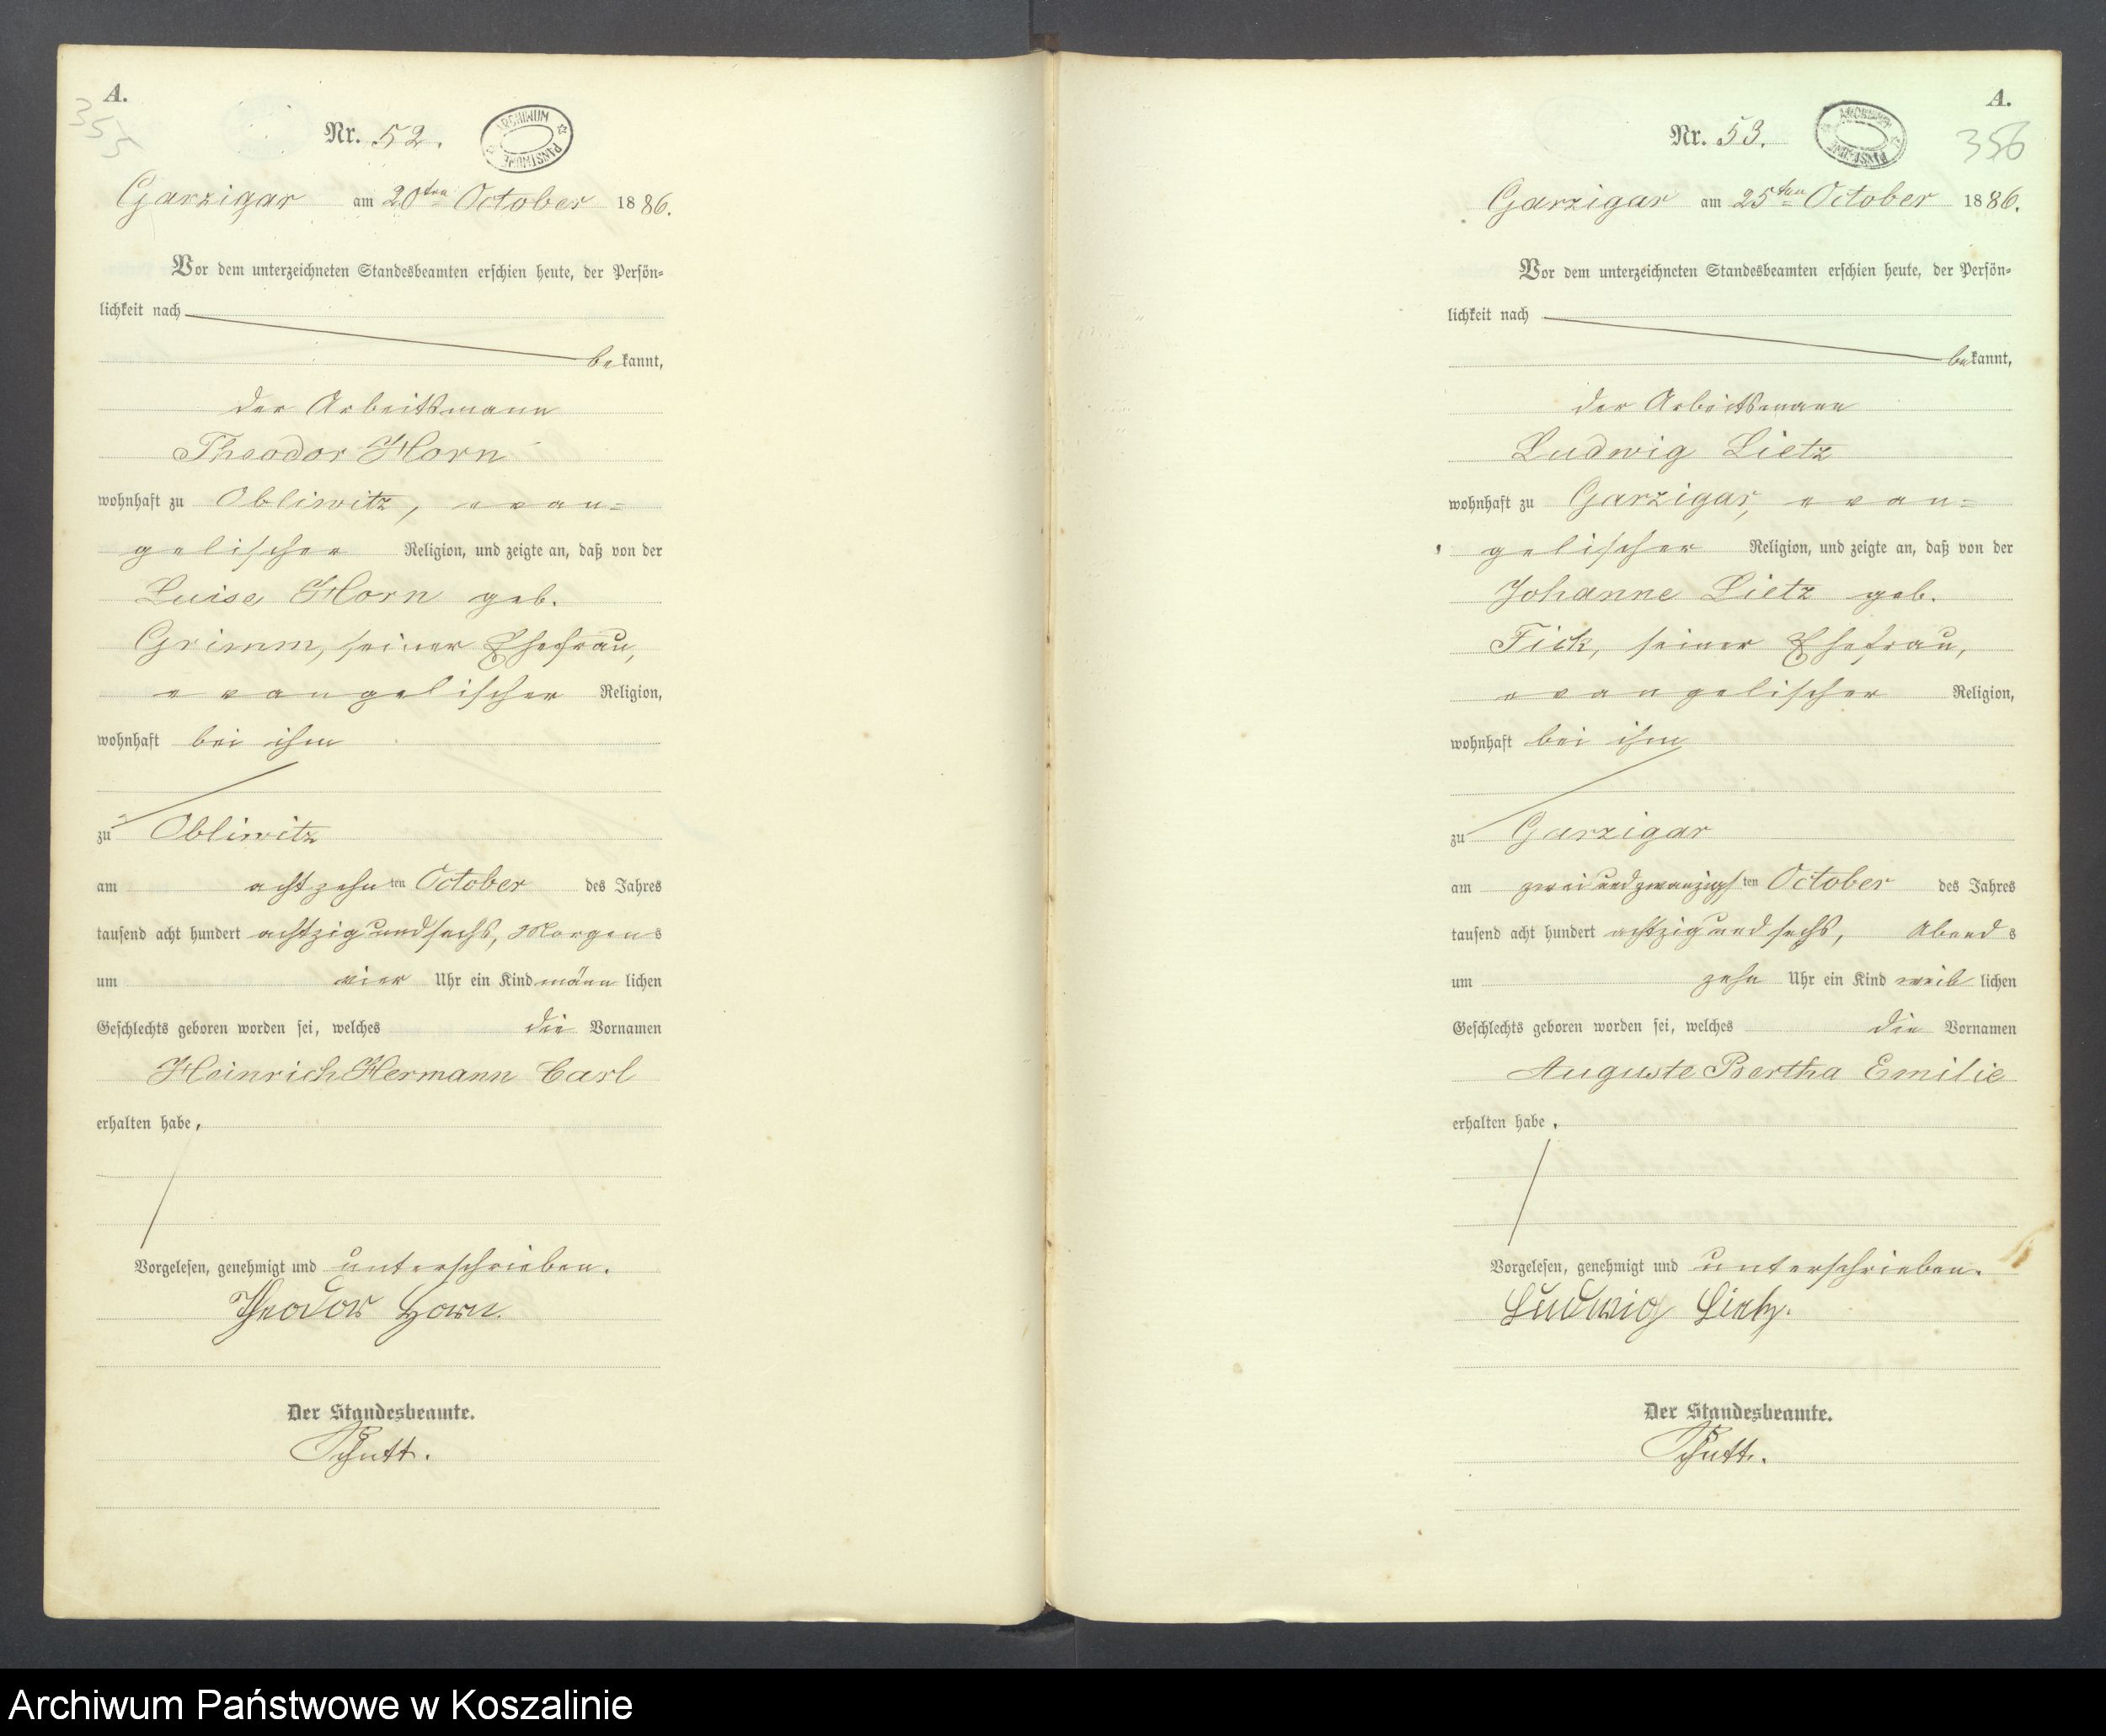 A.
355
Nr. 52.
ARCHIWUM PAŃSTWOWE
Garzigar am 20ten October 1886.
Vor dem unterzeichneten Standesbeamten erschien heute, der Persön-
lichkeit nach
bekannt,
der Arbeitsmann
Theodor Horn
wohnhaft zu Obliwitz, evan-
gelischer Religion, und zeigte an, daß von der
Luise Horn geb.
Grimm, seiner Ehefrau,
evangelischer Religion,
wohnhaft bei ihm
zu Obliwitz
am achtzehnten October des Jahres
tausend acht hundert achtzig und sechs, Morgens
um vier Uhr ein Kind männlichen
Geschlechts geboren worden sei, welches die Vornamen
Heinrich Hermann Carl
erhalten habe.
Vorgelesen, genehmigt und unterschrieben.
Theodor Horn.
Der Standesbeamte.
Schutt.
A.
356
Nr. 53.
ARCHIWUM PAŃSTWOWE
Garzigar am 25ten October 1886.
Vor dem unterzeichneten Standesbeamten erschien heute, der Persön-
lichkeit nach
bekannt,
der Arbeitsmann
Ludwig Lietz
wohnhaft zu Garzigar, evan-
gelischer Religion, und zeigte an, daß von der
Johanne Lietz geb.
Fick, seiner Ehefrau,
evangelischer Religion,
wohnhaft bei ihm
zu Garzigar
am zweiundzwanzigsten October des Jahres
tausend acht hundert achtzig und sechs, Abends
um zehn Uhr ein Kind weiblichen
Geschlechts geboren worden sei, welches die Vornamen
Auguste Bertha Emilie
erhalten habe.
Vorgelesen, genehmigt und unterschrieben.
Ludwig Lietz.
Der Standesbeamte.
Schutt.
Archiwum Państwowe w Koszalinie